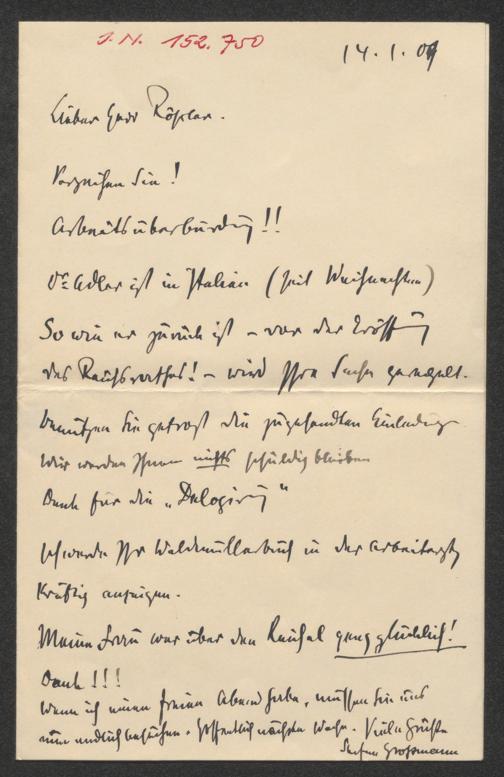 J.N. 152.750
14.1.09
Lieber Herr Rößler.
Verzeihen Sie!
Arbeitsüberbürdung!!
Dr Adler ist in Italien (seit Weihnachten)
So wie er zurück ist – vor der Eröffnung
des Reichsrathes! – wird Ihre Sache geregelt.
Benützen Sie getrost die zugesandten Einladung
Wir werden Ihnen nichts schuldig bleiben
Dank für die „Delogirung"
Ich werde Ihr Waldmüllerbuch in der Arbeiterztg
kräftig anzeigen.
Meine Frau war über den ganz glücklich!
Dank!!!
Wenn ich einen freien Abend habe, müssen Sie uns
nun endlich besuchen. Hoffentlich nächste Woche. Viele Grüße
Stefan Großmann